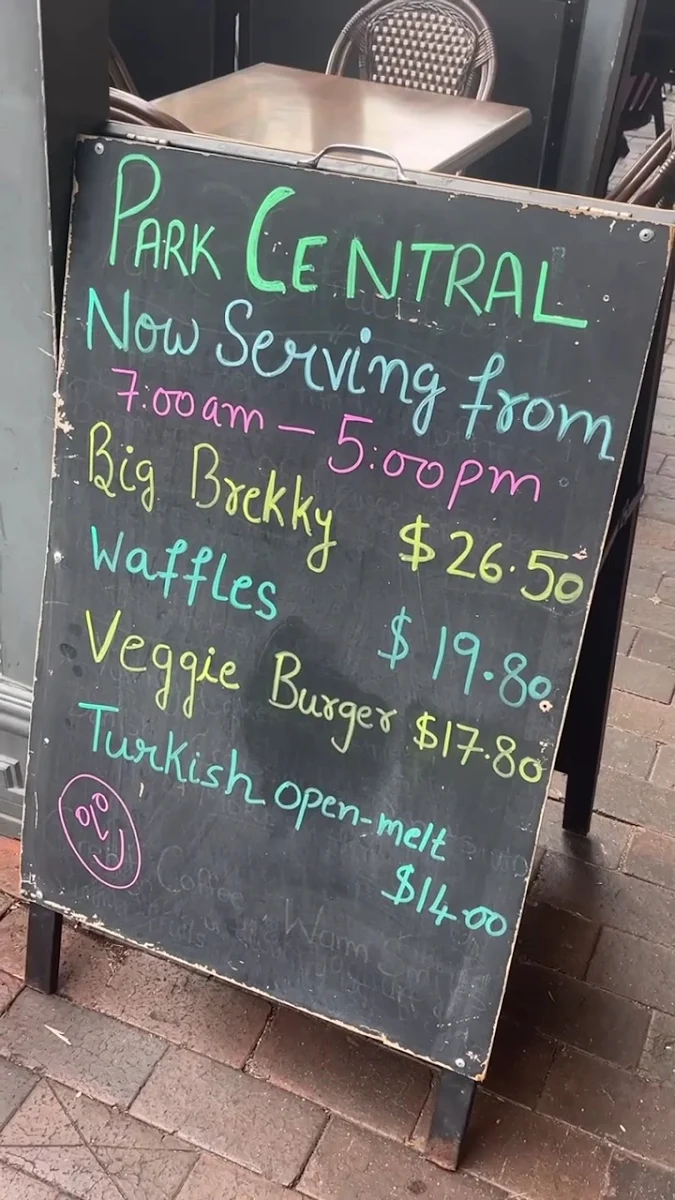 PARK CENTRAL
Now Serving from
7:00am - 5:00pm
Big Brekky $26.50
Waffles $19.80
Veggie Burger $17.80
Turkish open-melt
$14.00
Coffee
Warm Smiles